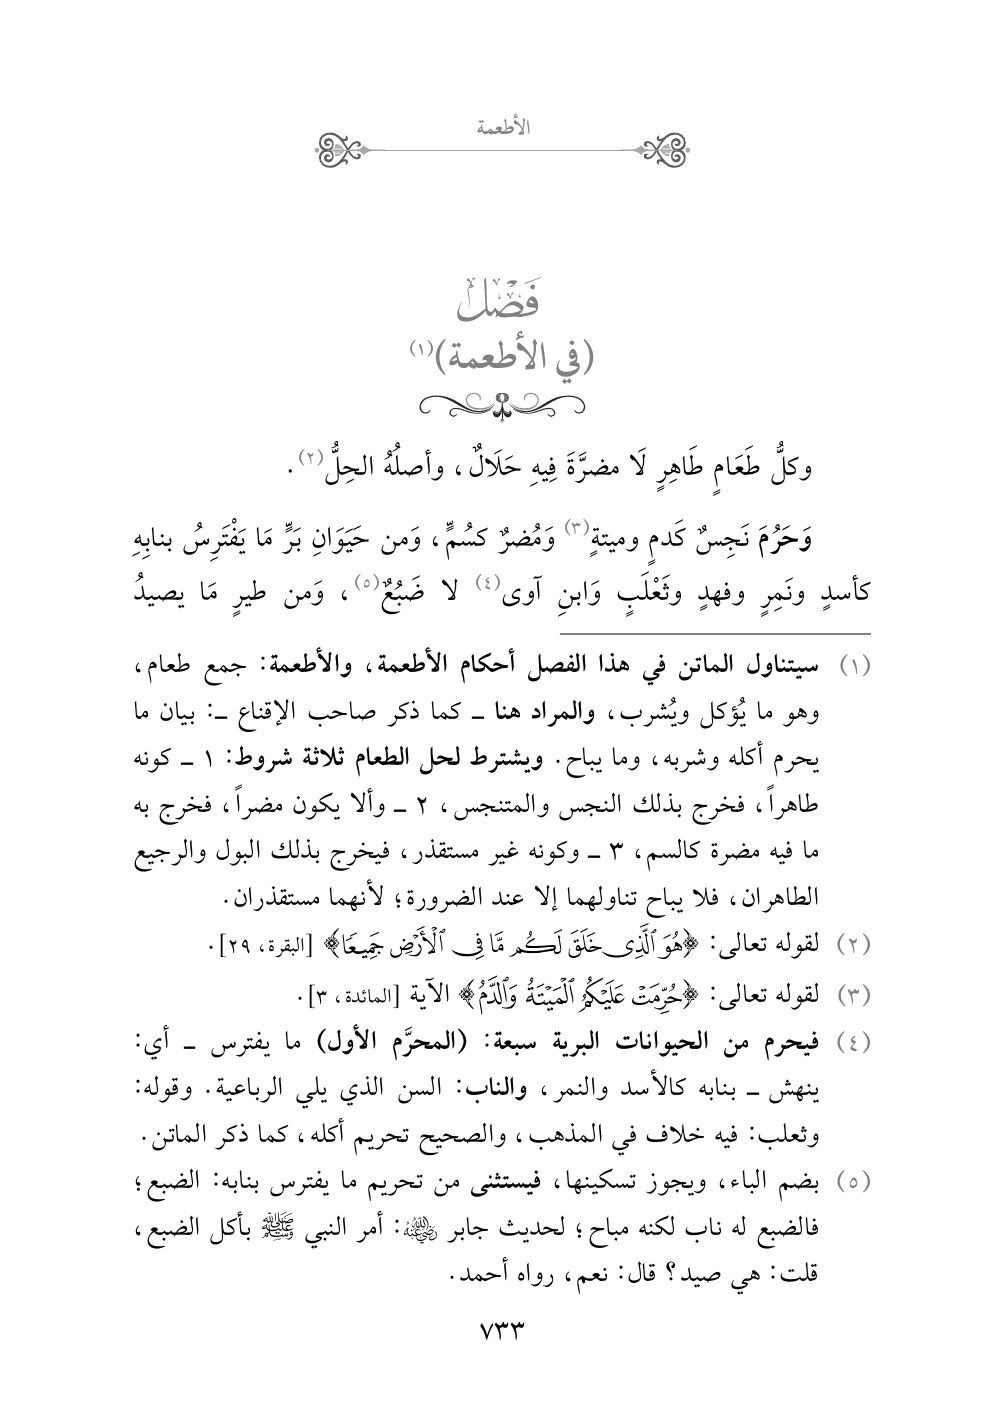 الأطعمة
فَصْل
(في الأطعمة)(١)
وكلُّ طَعَامٍ طَاهِرٍ لَا مضرَّةَ فِيهِ حَلَالٌ، وأصلُهُ الحِلُّ(٢).
وَحَرُمَ نَجِسٌ كَدمٍ وميتةٍ(٣) وَمُضرٌ كسُمٍّ، وَمن حَيَوَانِ بَرٍّ مَا يَفْتَرِسُ بنابِهِ
كأسدٍ ونَمِرٍ وفهدٍ وثَعْلَبٍ وَابنِ آوى(٤) لا ضَبُعٌ(٥)، وَمن طيرٍ مَا يصيدُ
(١) سيتناول الماتن في هذا الفصل أحكام الأطعمة، والأطعمة: جمع طعام،
وهو ما يُؤكل ويُشرب، والمراد هنا ـ كما ذكر صاحب الإقناع ـ: بيان ما
يحرم أكله وشربه، وما يباح. ويشترط لحل الطعام ثلاثة شروط: ١ ـ كونه
طاهراً، فخرج بذلك النجس والمتنجس، ٢ ـ وألا يكون مضراً، فخرج به
ما فيه مضرة كالسم، ٣ ـ وكونه غير مستقذر، فيخرج بذلك البول والرجيع
الطاهران، فلا يباح تناولهما إلا عند الضرورة؛ لأنهما مستقذران.
(٢) لقوله تعالى: ﴿هُوَ ٱلَّذِى خَلَقَ لَكُم مَّا فِى ٱلْأَرْضِ جَمِيعًا﴾ [البقرة، ٢٩].
(٣) لقوله تعالى: ﴿حُرِّمَتْ عَلَيْكُمُ ٱلْمَيْتَةُ وَٱلدَّمُ﴾ الآية [المائدة، ٣].
(٤) فيحرم من الحيوانات البرية سبعة: (المحرَّم الأول) ما يفترس ـ أي:
ينهش ـ بنابه كالأسد والنمر، والناب: السن الذي يلي الرباعية. وقوله:
وثعلب: فيه خلاف في المذهب، والصحيح تحريم أكله، كما ذكر الماتن.
(٥) بضم الباء، ويجوز تسكينها، فيستثنى من تحريم ما يفترس بنابه: الضبع؛
فالضبع له ناب لكنه مباح؛ لحديث جابر رضي الله عنه: أمر النبي ﷺ بأكل الضبع،
قلت: هي صيد؟ قال: نعم، رواه أحمد.
٧٣٣